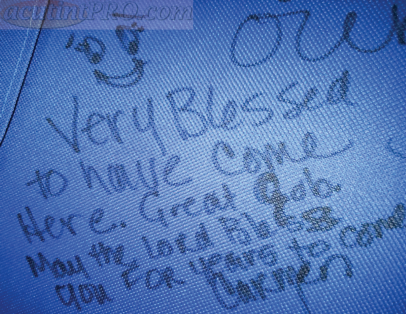 Very Blessed
to have come
Here. Great Job.
May the Lord Bless
you For years to come
Carmen